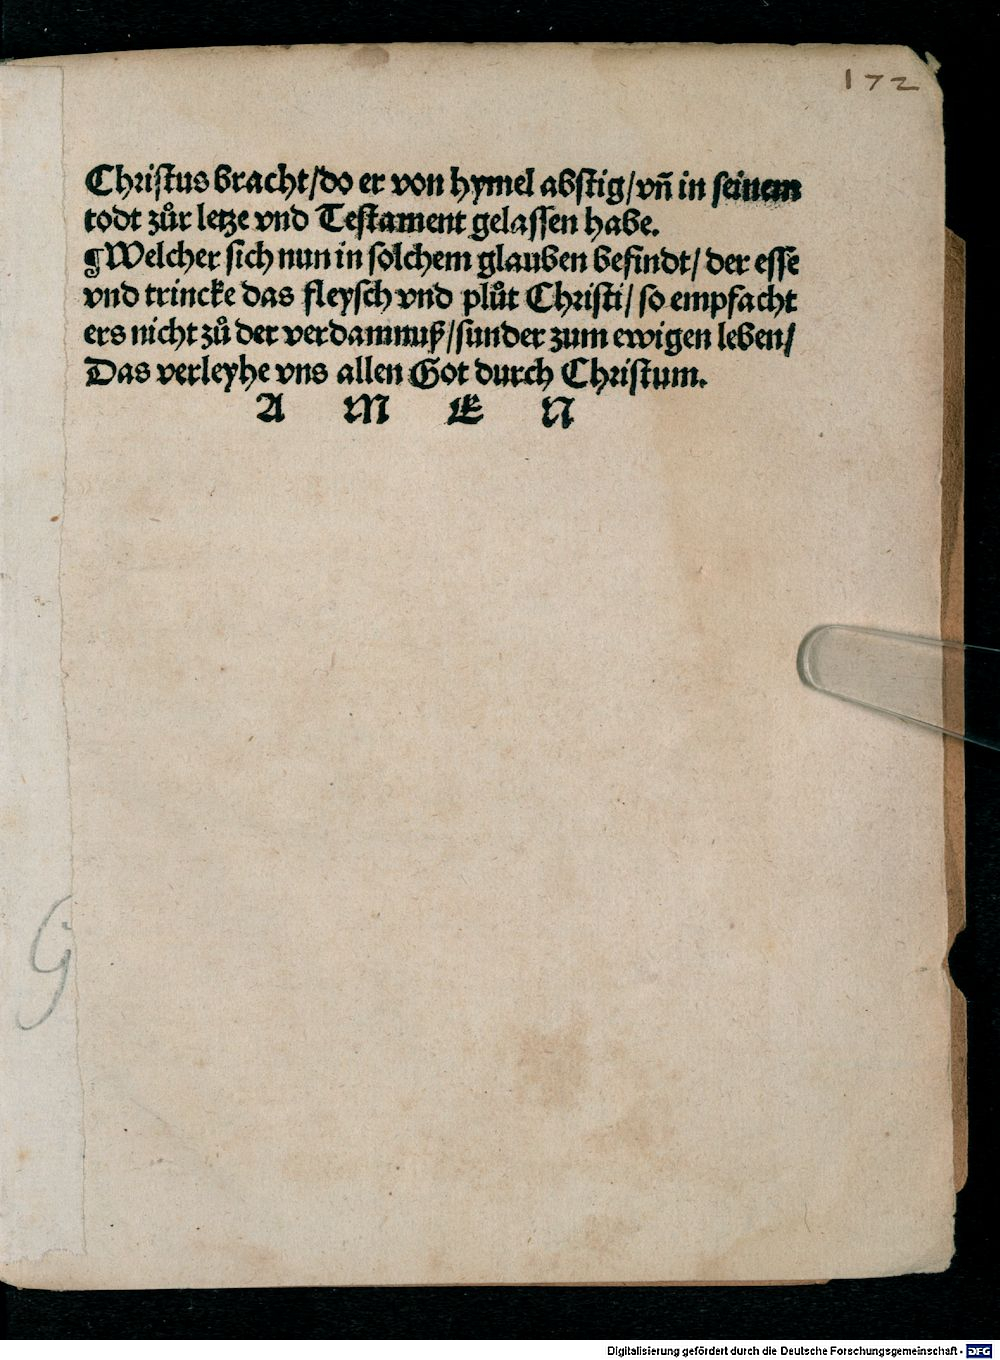 172
Christus bracht/do er von hymel abstig/vñ in seinem
todt zůr letze vnd Testament gelassen habe.
¶Welcher sich nun in solchem glauben befindt/ der esse
vnd trincke das fleysch vnd plůt Christi/ so empfacht
ers nicht zů der verdamnuß/sunder zum ewigen leben/
Das verleyhe vns allen Got durch Christum.
A M E N
G
Digitalisierung gefördert durch die Deutsche Forschungsgemeinschaft - DFG